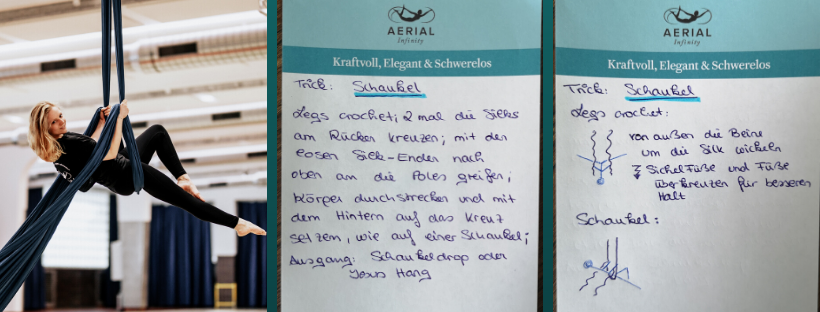 AERIAL
Infinity
Kraftvoll, Elegant & Schwerelos
Trick: Schaukel
Legs crochet; 2 mal die Silks
am Rücken kreuzen; mit den
losen Silk-Enden nach
oben an die Poles greifen;
Körper durchstrecken und mit
dem Hintern auf das Kreuz
setzen, wie auf einer Schaukel;
Ausgang: Schaukeldrop oder
Jesus Hang
AERIAL
Infinity
Kraftvoll, Elegant & Schwerelos
Trick: Schaukel
Legs crochet:
von außen die Beine
um die Silk wickeln
Sichelfüße und Füße
überkreuzen für besseren
Halt
Schaukel: